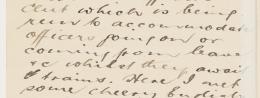 Club which is being
run to accommodate
officers going on or
coming from leave
& c whilst they await
trains. Here I met
some cheery English